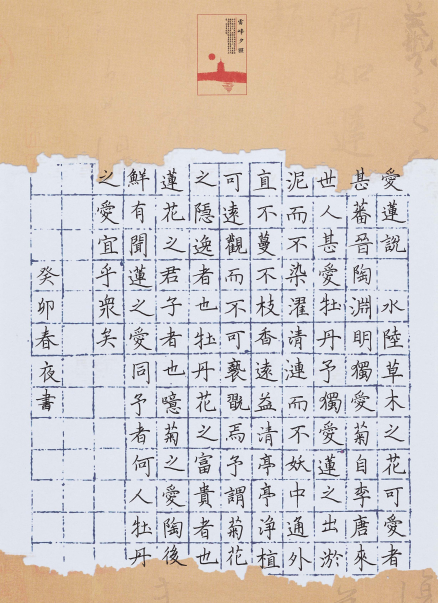 雷峰夕照
愛蓮說 水陸草木之花可愛者
甚蕃晉陶淵明獨愛菊自李唐來
世人甚愛牡丹予獨愛蓮之出淤
泥而不染濯清漣而不妖中通外
直不蔓不枝香遠益清亭亭淨植
可遠觀而不可褻翫焉予謂菊花
之隱逸者也牡丹花之富貴者也
蓮花之君子者也噫菊之愛陶後
鮮有聞蓮之愛同予者何人牡丹
之愛宜乎衆矣
癸卯春夜書